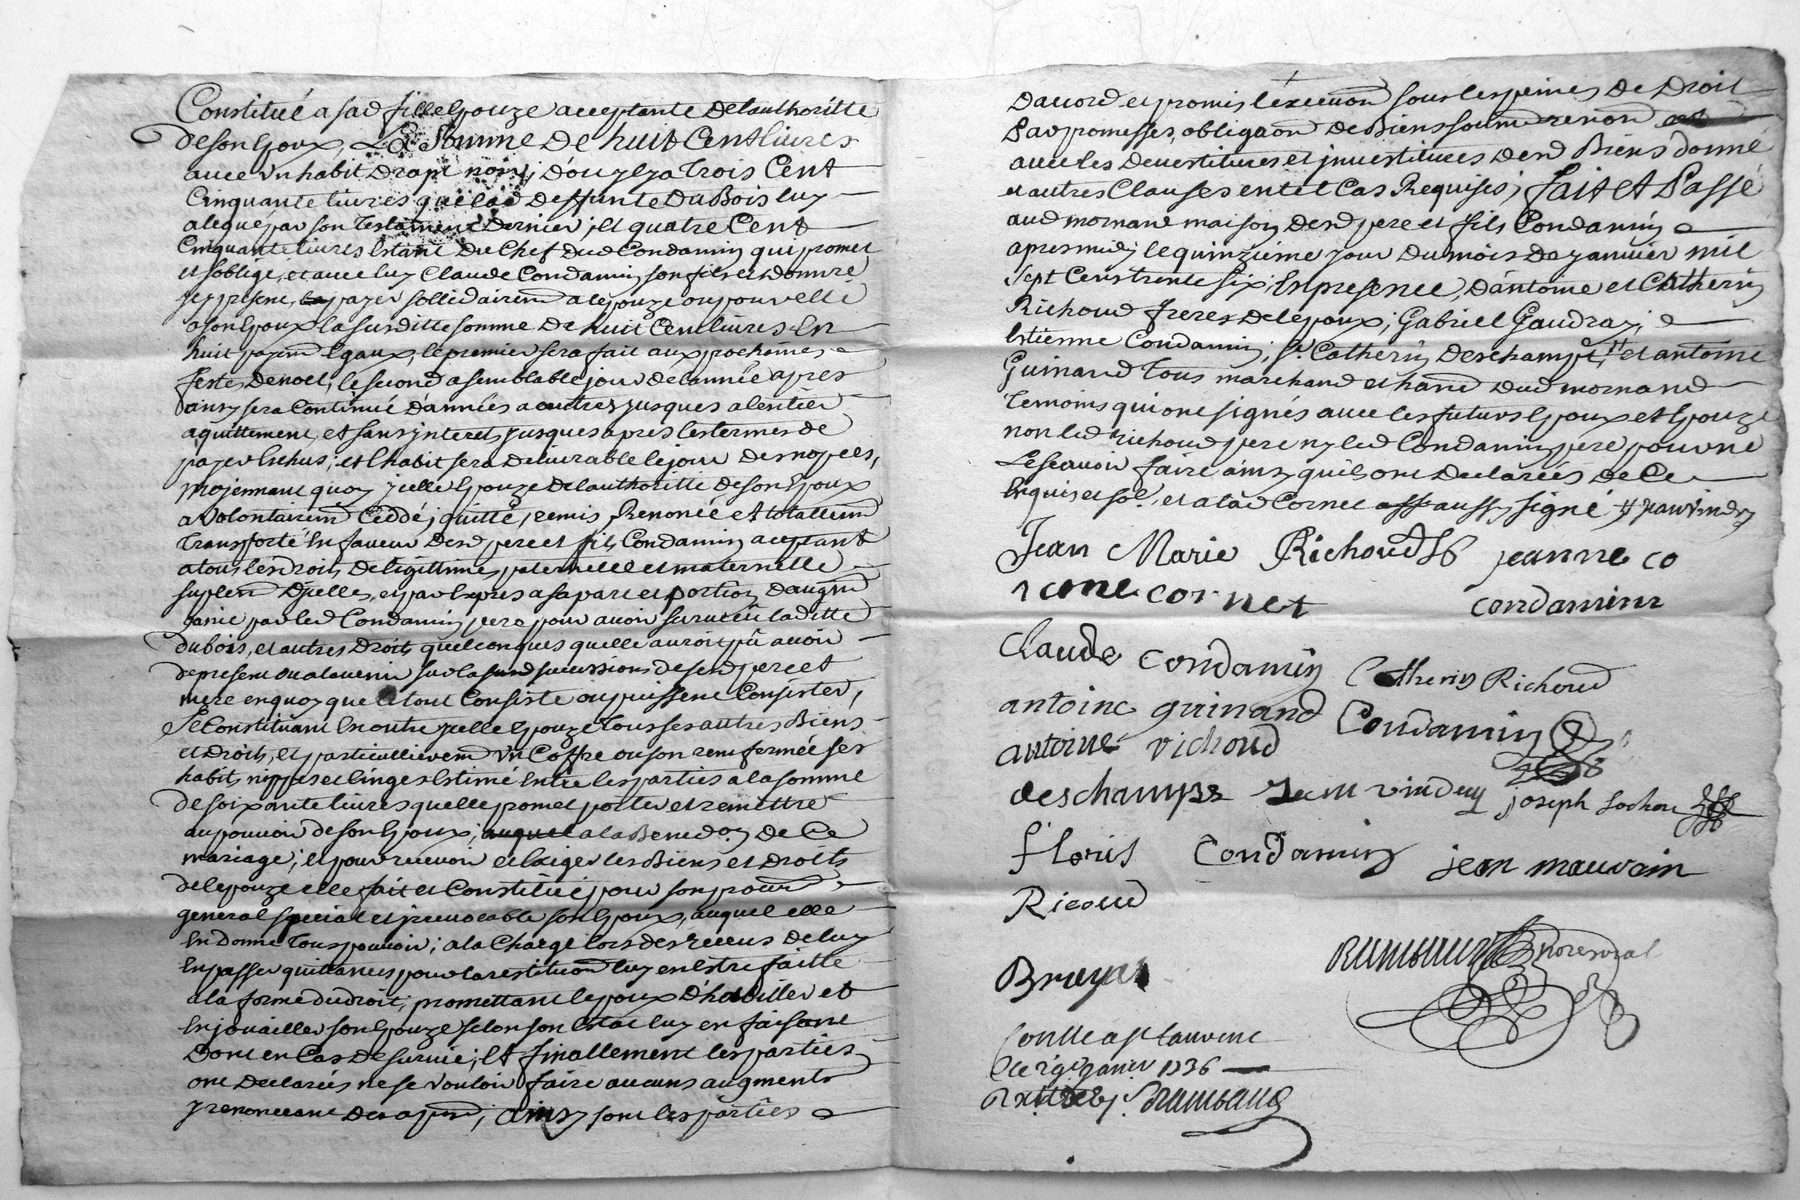 Constitué a sad fille Epouze acceptante de lauthoritte
de son Epoux, La Somme de huit Cent livres
avec Un habit drapt noir, d'ou y lya trois Cent
Cinquante livres que lad deffunte DuBois luy
a legué par son testament dernier, Et quatre Cent
Cinquante livres Estant du Chef dud Condamin qui promet
et soblige, et avec luy Claude Condamin son fils et donnre
icy present, payer sollidairemt a lepouze ou pour elle
a son Epoux la susditte somme de huit Cent livres En
huit payemt Egaux, le premier sera fait aux prochaines
festes de noel, le second a semblable jour de lannée apres
ainsy sera Continué d'années a autres jusques a lentier
aquittement, et sans jnterets jusques apres les termes de
payer Echus; et lhabit sera delivrable le jour des nopces,
moyennant quoy jcelle Epouze de lauthoritte de son Epoux
a volontairemt Ceddé, quitté, remis, Renoncé et totallemt
transporté En faveur desd pere et fils Condamin acceptant
a tous les droits de legittimes paternelle et maternelle
suplemt dicelles, et par Expres a sa part et portion d'augmt
gaigné par led Condamin pere pour avoir survecu laditte
dubois, et autres droits quelconques quelle auroit pû avoir
de present ou a lavenir sur la succession de sesd pere et
mere en quoy que le tout Consiste ou puissent Consister,
Se Constituant En outre jcelle Epouze tous ses autres Biens
et droits, et particullieremt Un Coffre ou son renfermée ses
habits nippes et linges Estimé Entre les parties a la somme
de soixante livres quelle promet porter et remettre
au pouvoir de son Epoux, auquel a la Benedon de Ce
mariage; et pour recevoir et Exiger les Biens et Droits
de lepouze elle fait et Constitüe pour son procur
general special et jrrevocable son Epoux, auquel elle
En donne tous pouvoir; a la Charge lors des receus de luy
En passer quittances pour la restitution luy en Estre faitte
a la forme du droit; promettant lepoux d'habiller et
Enjouailler son Epouze selon son Estat luy en faisant
Dont en Cas de survie; et finallement les parties
ont declarées ne se vouloir faire aucuns augments
y renonceant ; ainsy sont les parties
daccord et promis lexecution sous les peines de Droit
Par promesses, obligaon de Biens soumon renon
avec les devestitures et jnvestitures desd Biens donné
et autres Clauses en tel Cas Requises; fait et Passé
aud mornand maison desd pere et fils Condamin
apres midy le quinziéme jour du mois de janvier mil
sept Cens trente six; En presence, d'antoine et Catherin
Richoud freres de lepoux; Gabriel Gaudray;
Estienne Condamin; sr Catherin Deschamps, # et antoine
Guinand tous marchand et hand dud mornand
temoins qui ont signés avec les futurs Epoux et Epouze
non led Richoud pere ny led Condamin pere pour ne
Le scavoir faire ainsy quils ont declarées de Ce
Enquis et som. et a lad Cornet aussy signé # jean vindry
Jean Marie Richoud jeanne co
rnet cornet condamin
Claude Condamin Catherin Richoud
antoine guinand Condamin
antoine richoud
deschamps Jean vindry joseph
floris Condamin jean mauvain
Ricoud
Bruyas
notre royal
Conlle a st laurent
le 29e janvier 1736